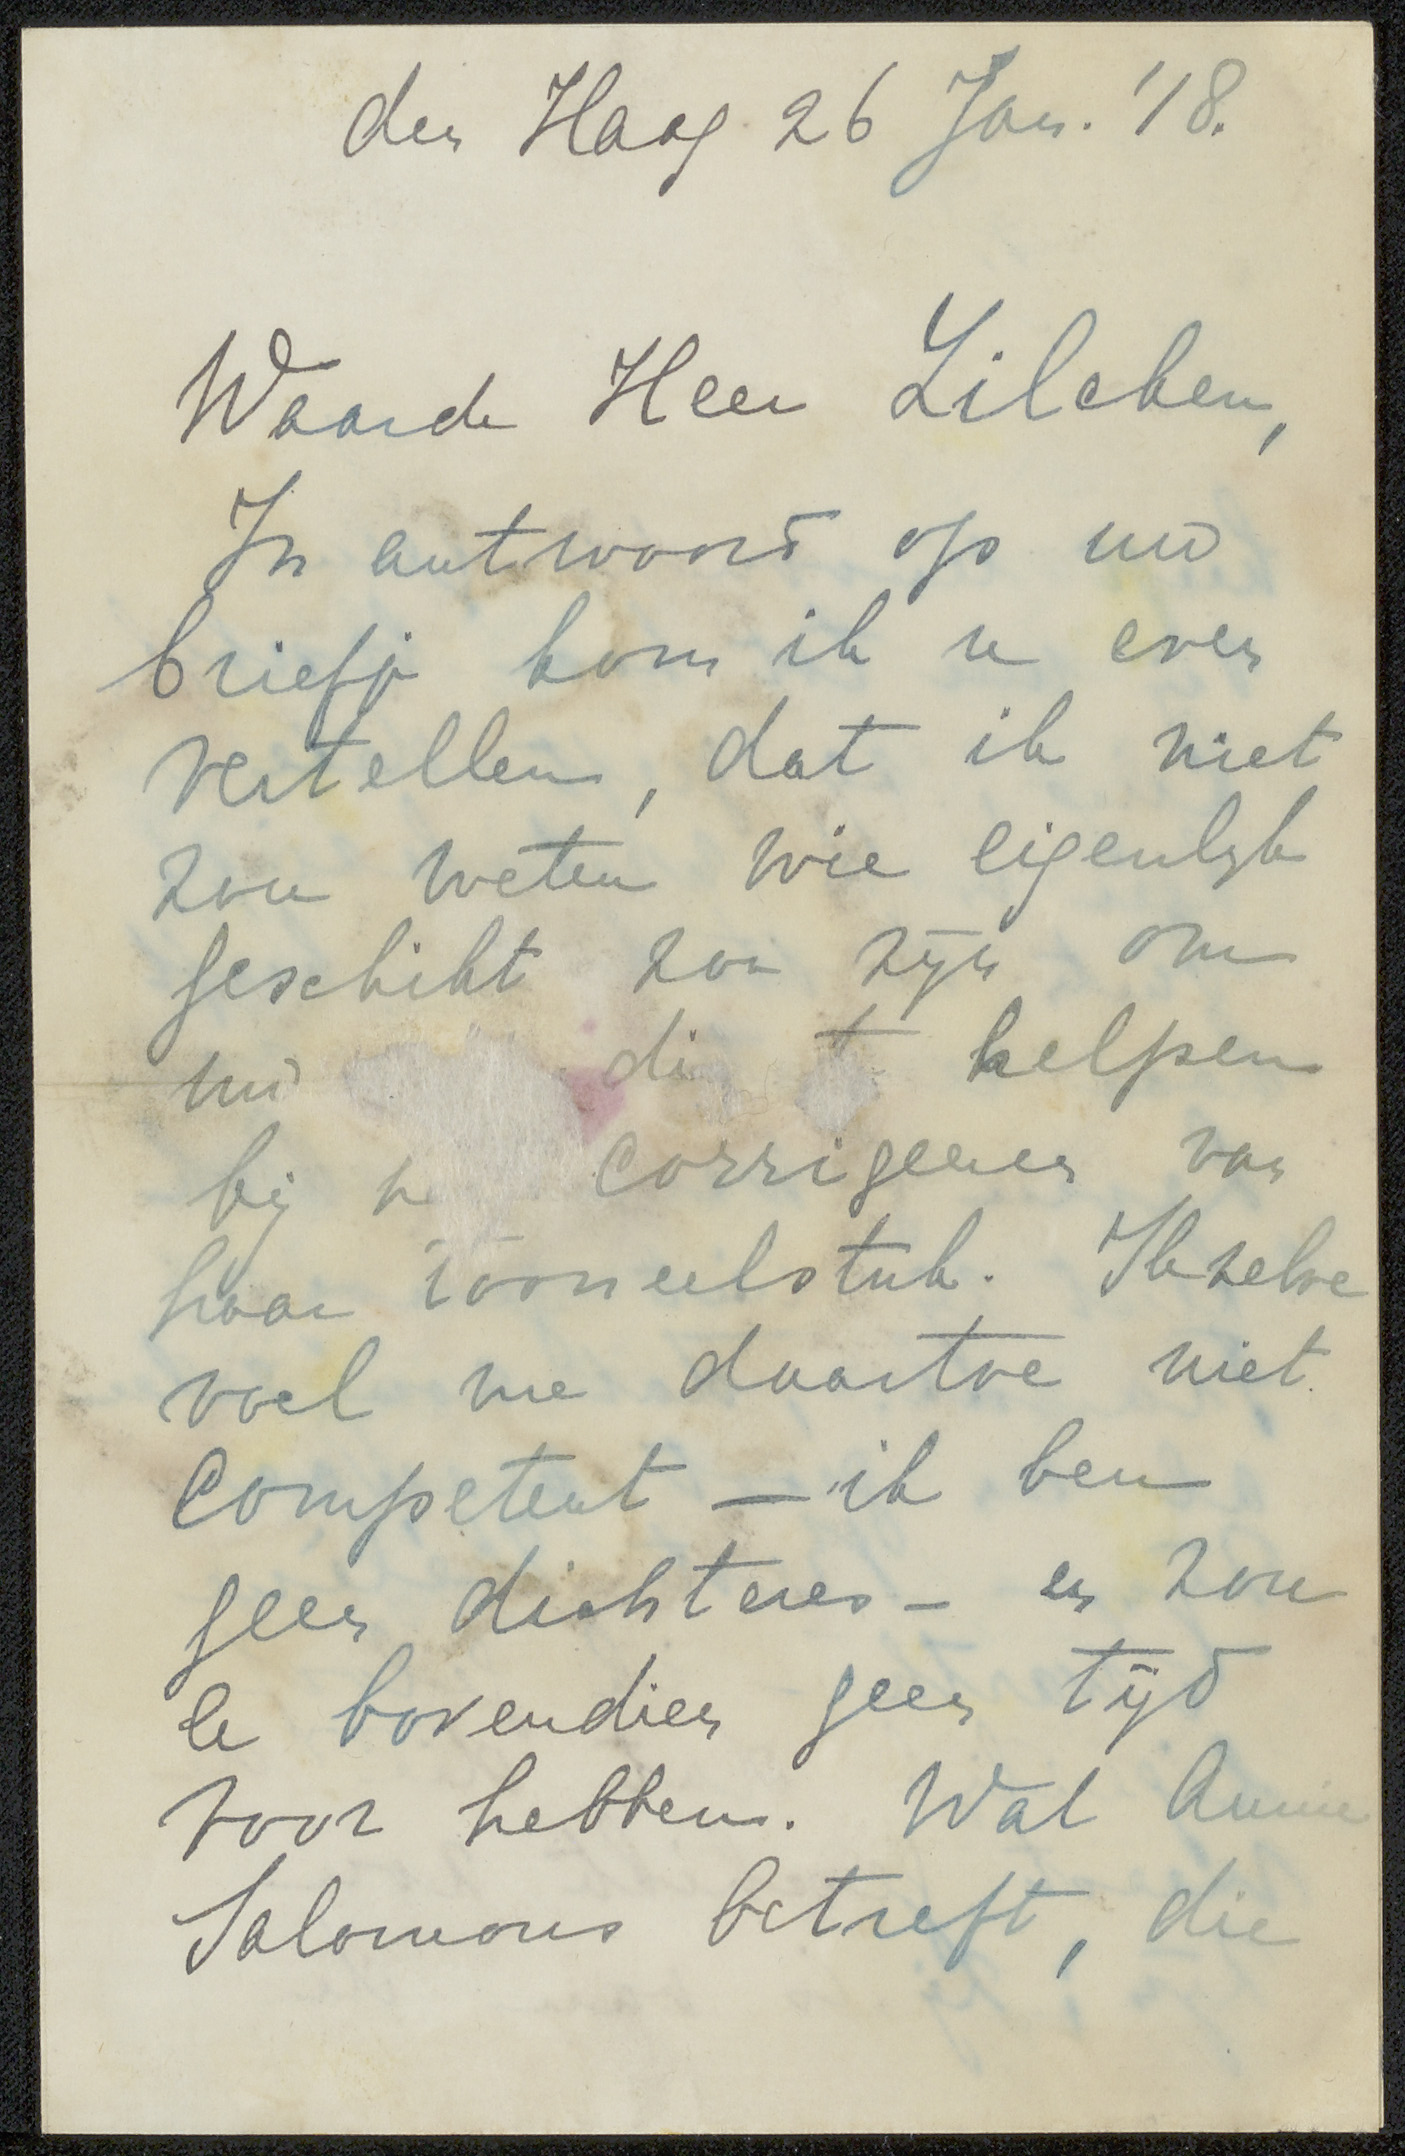 den Haag 26 Jan. '18.
Waarde Heer Zilcken,
In antwoord op uw
briefje kom ik u even
vertellen, dat ik niet
zou weten wie eigenlyk
geschikt zou zyn om
uw di t helpen
bij h corrigeeren van
haar tooneelstuk. Ikzelve
voel me daartoe niet
competent – ik ben
geen dichteres – en zou
er bovendien geen tyd
voor hebben. Wat Annie
Salomons betreft, die